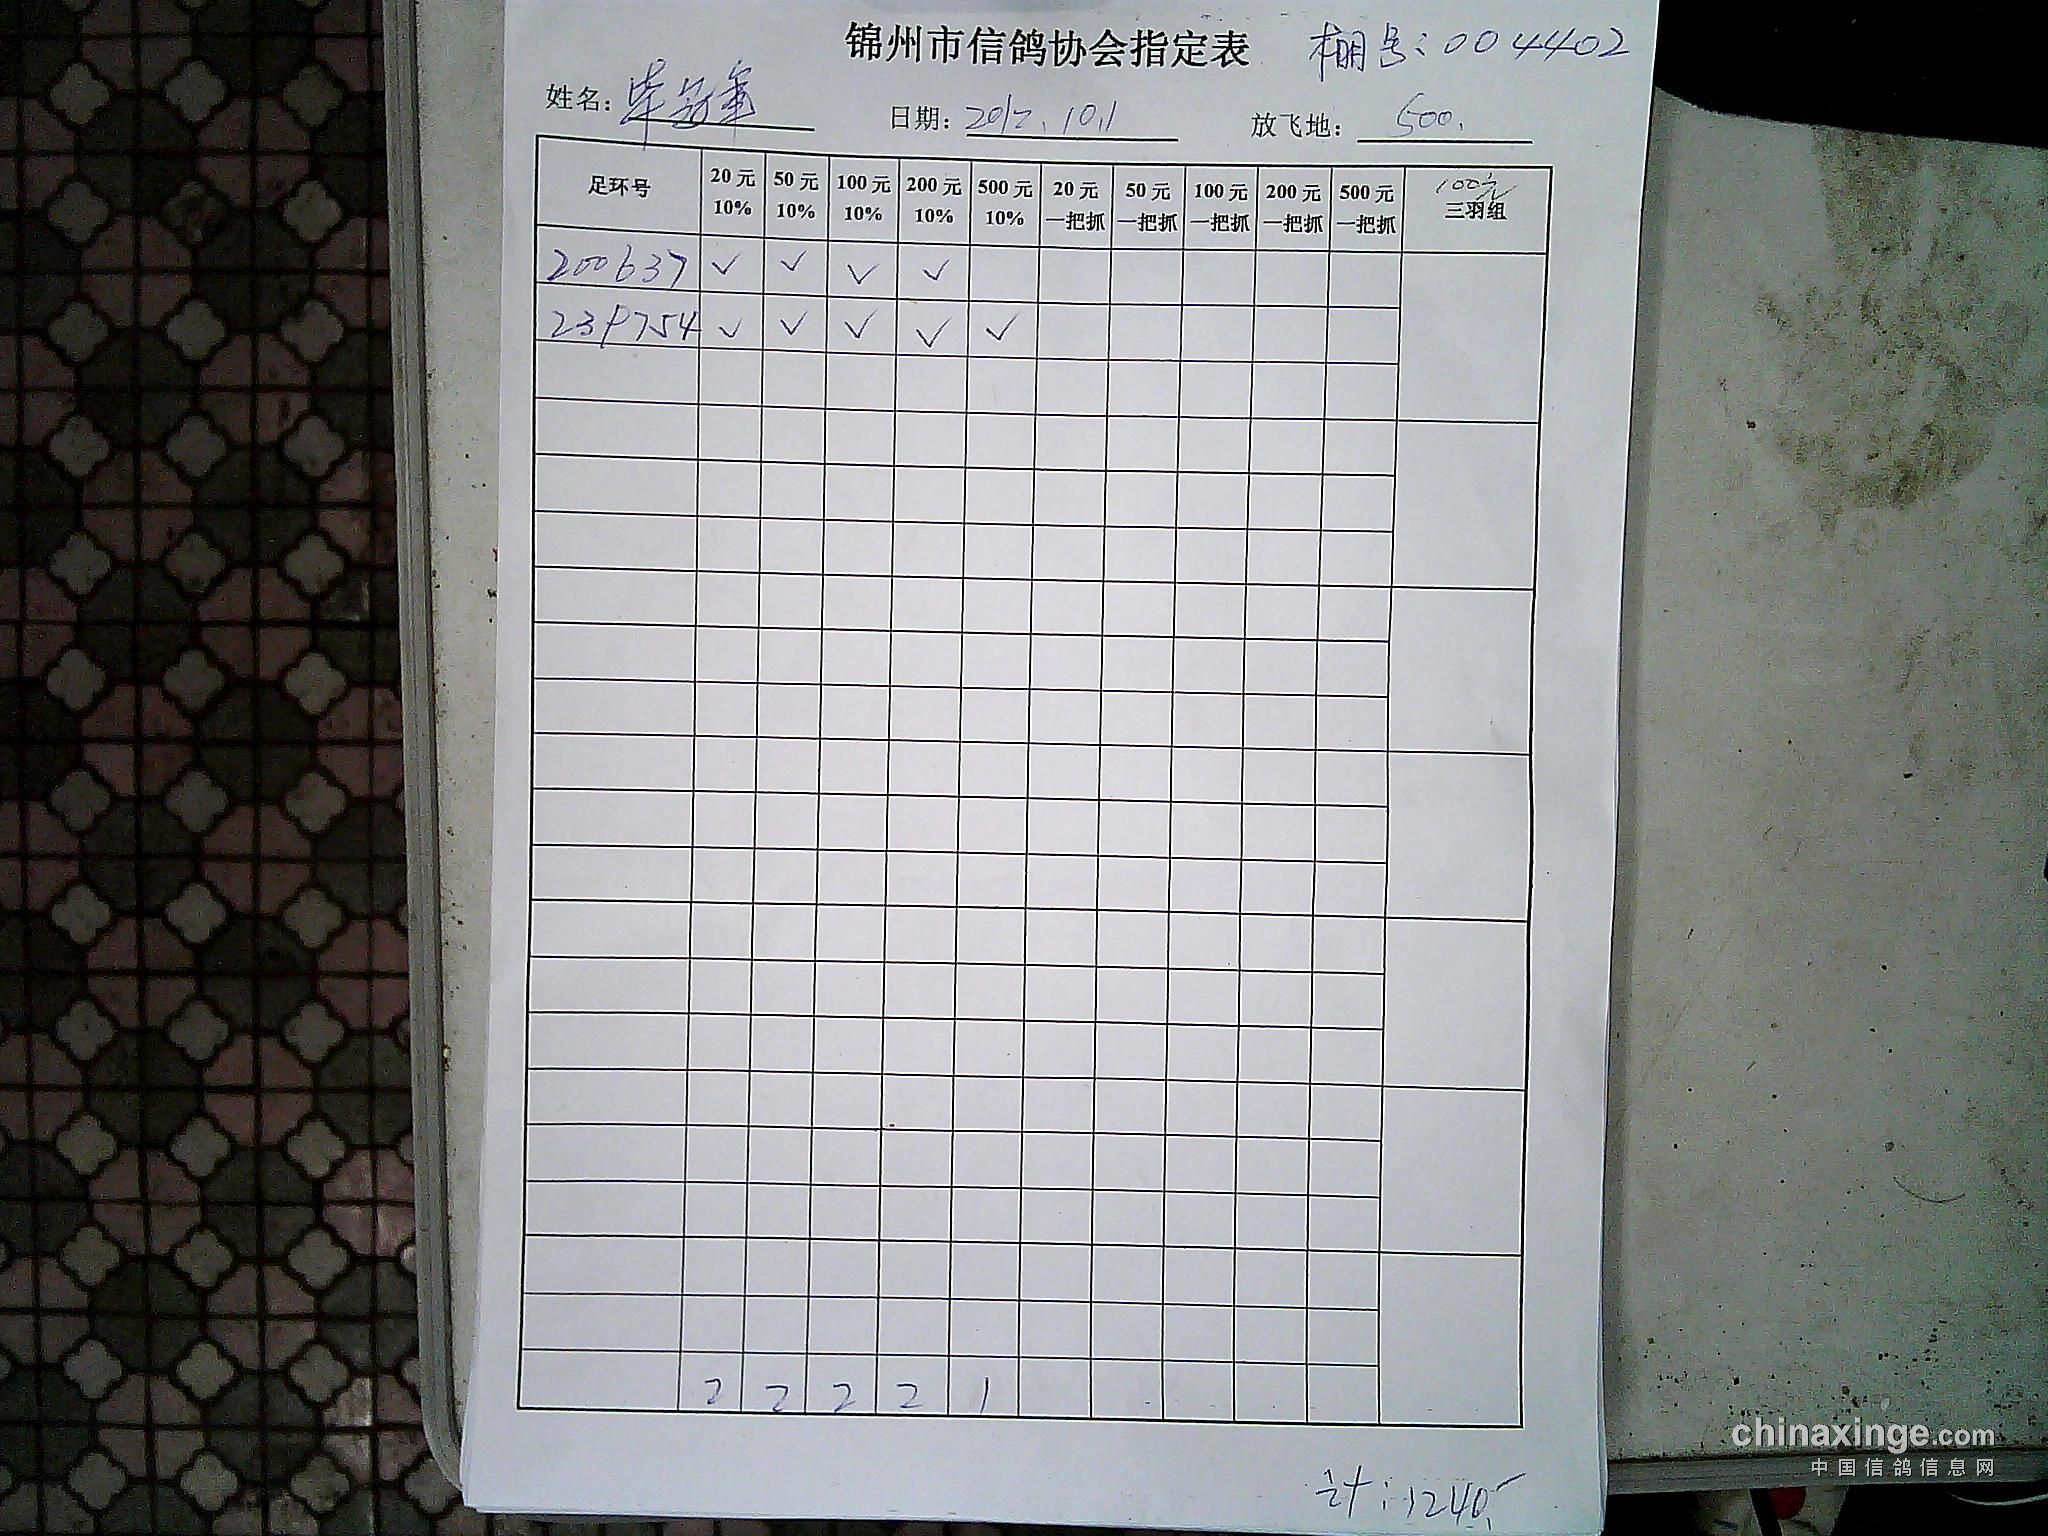 锦州市信鸽协会指定表 棚号:004402
姓名: 日期: 2012.10.1 放飞地: 500.
足环号 20元 10% 50元 10% 100元 10% 200元 10% 500元 10% 20元 一把抓 50元 一把抓 100元 一把抓 200元 一把抓 500元 一把抓 100元 三羽组
200637 ✓ ✓ ✓ ✓
239754 ✓ ✓ ✓ ✓ ✓
2 2 2 2 1
计:1240.
chinaxinge.com
中国信鸽信息网